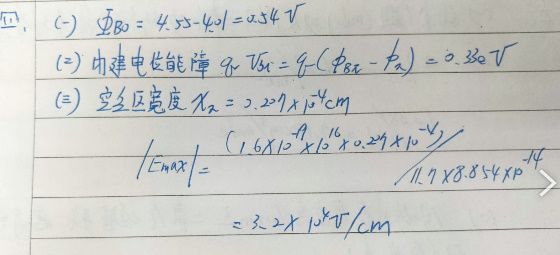 四. (一) Φ_B0 = 4.55-4.01=0.54 V
(2) 内建电位能障 q V_bi = q(Φ_B2 - Φ_n) = 0.330 V
(三) 空乏区宽度 X_n = 0.207×10^-4 cm
|Emax| = (1.6×10^-19×10^16×0.207×10^-4) / 11.7×8.854×10^-14
= 3.2×10^4 V/cm